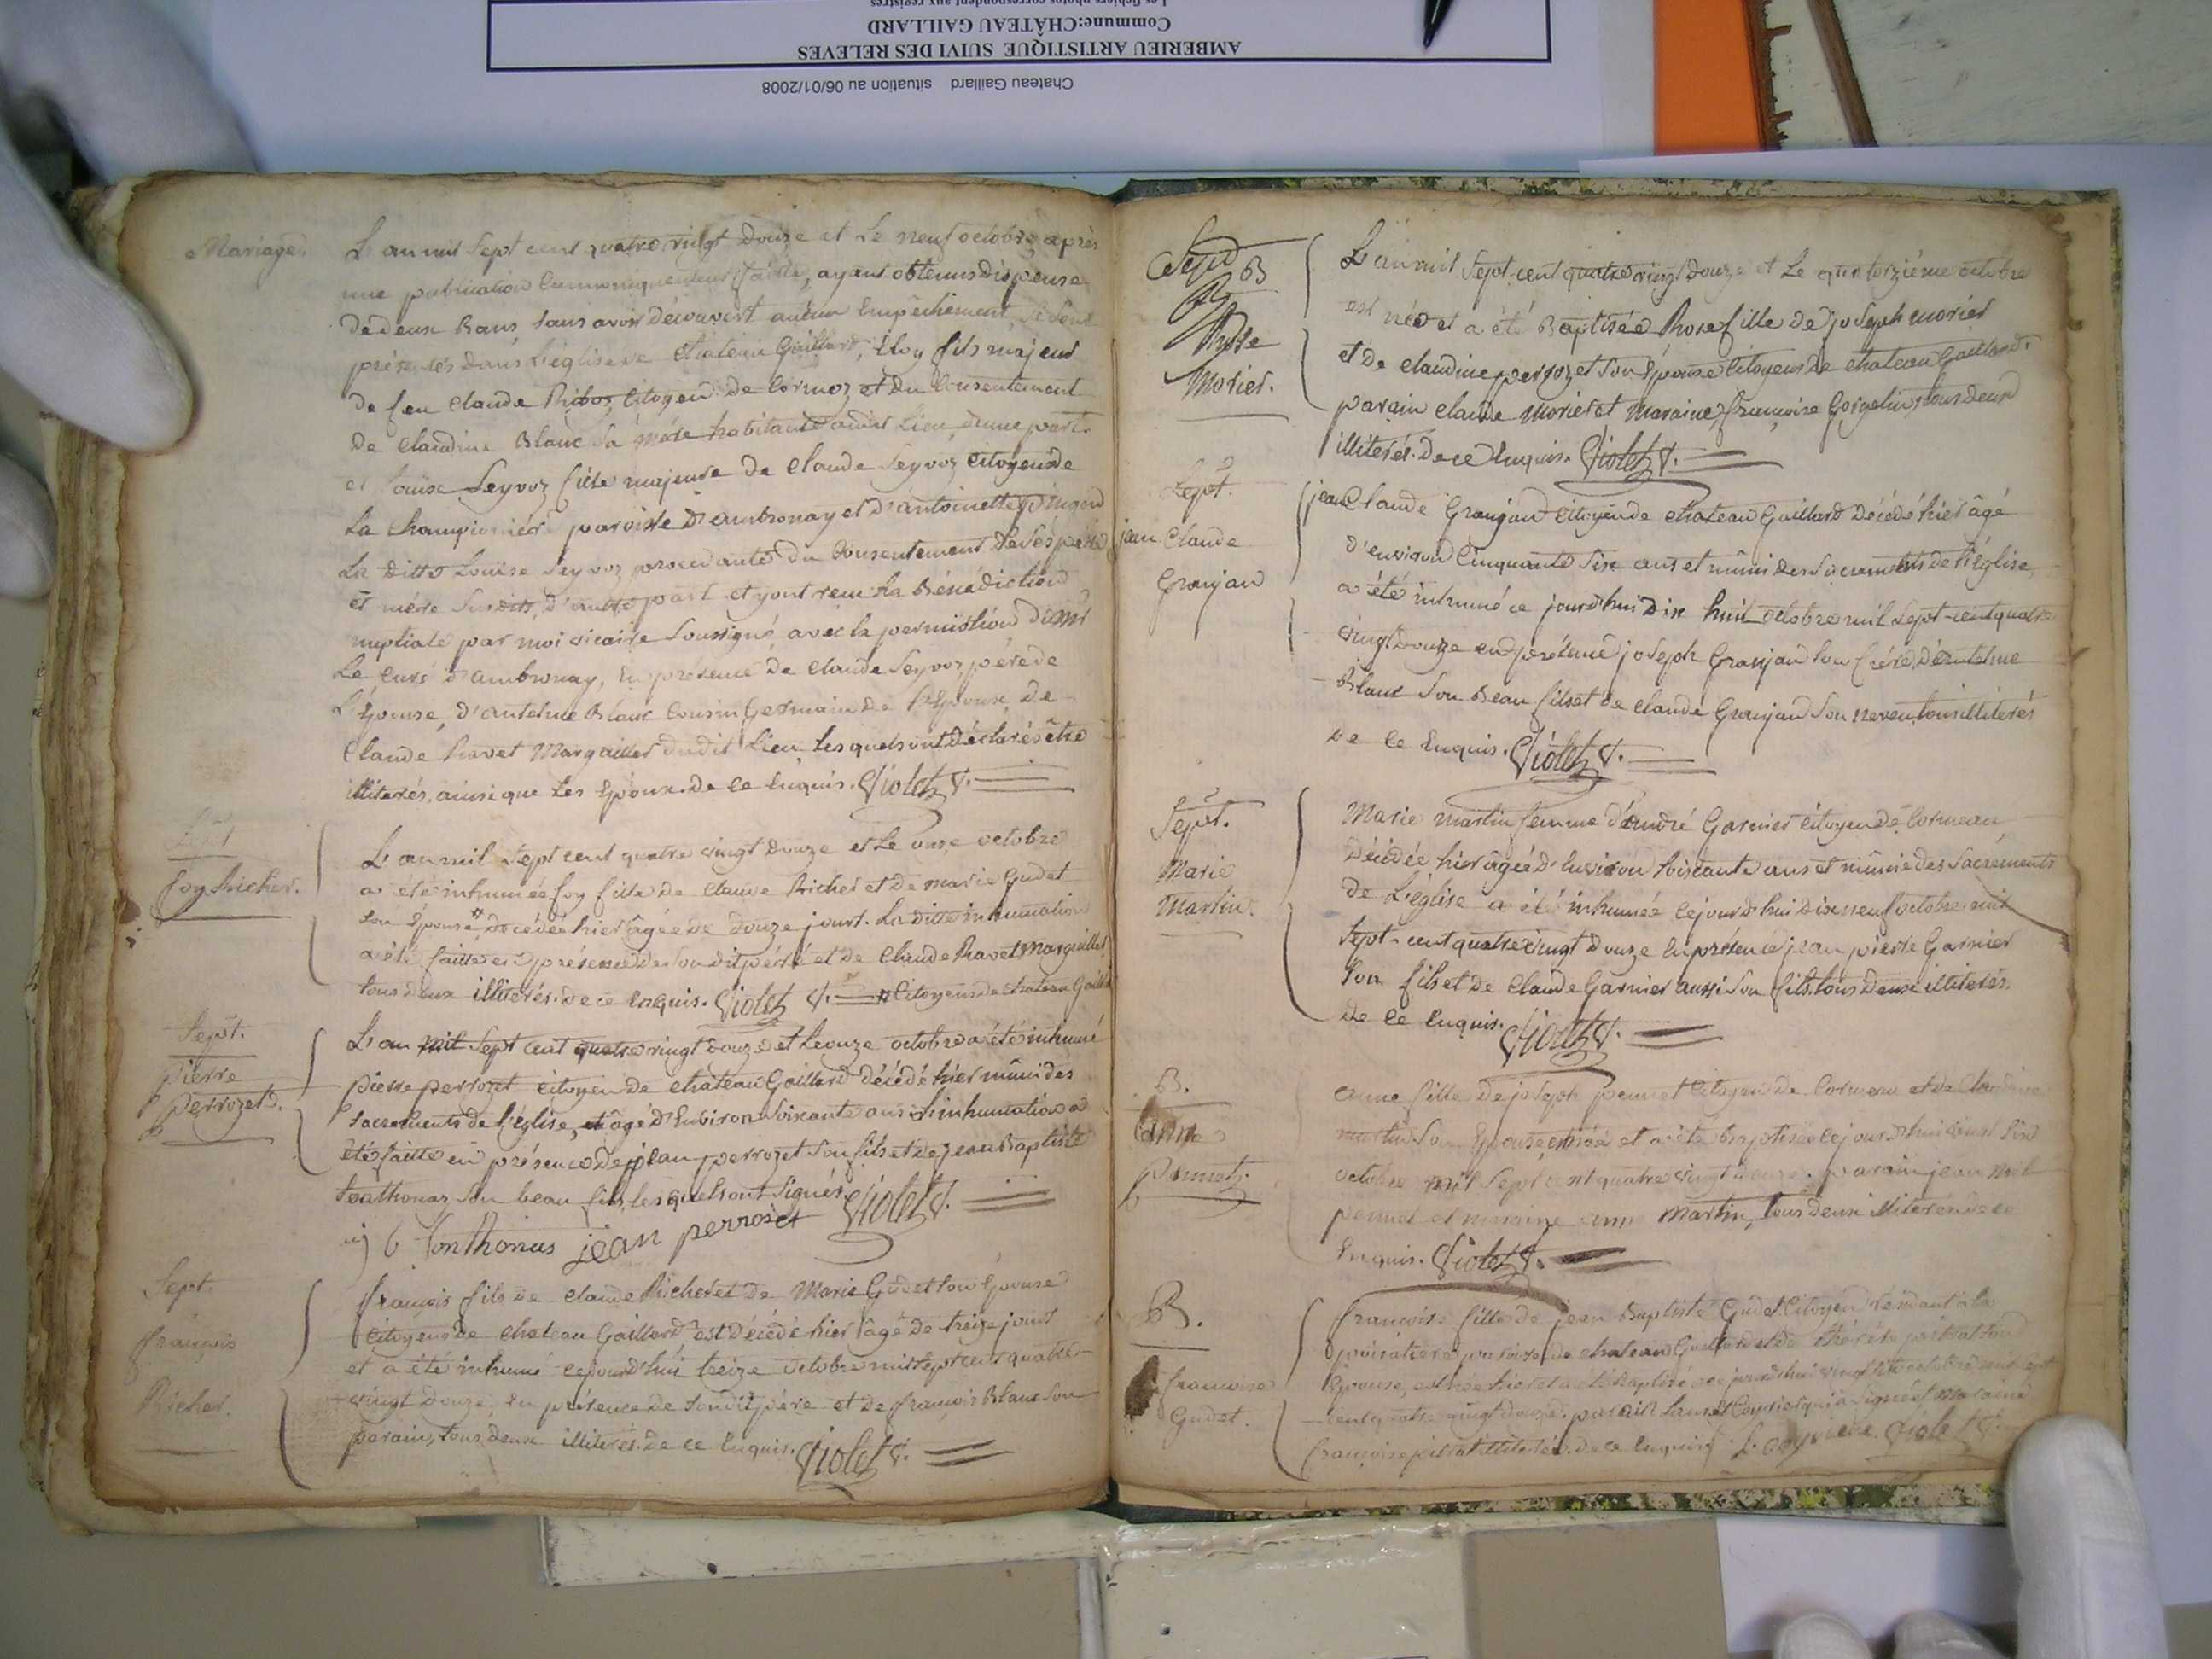 Les fichiers photos correspondent aux registres
Commune:CHÂTEAU GAILLARD
AMBERIEU ARTISTIQUE SUIVI DES RELEVES
Chateau Gaillard situation au 06/01/2008
Mariage.
L'an mil sept cent quatre vingt douze et le neuf octobre après
une publication canoniquement faite, ayant obtenus dispense
de deux Bans, sans avoir découvert aucun empêchement, se sont
présentés dans l'église de chateau Gaillard, Eloy fils majeur
de feu Claude citoyen de Cormoz et du consentement
de Claudine Blanc sa mére habitante audit lieu, d'une part.
et Louise Seyvoz fille majeure de Claude Seyvoz citoyen de
la Championiére paroisse d'ambronay et d'antoinette
la ditte Louise Seyvoz procedante du consentement de ses pére
et mére susdits, d'autre part et y ont reçu la Bénédiction
nuptiale par moi vicaire soussigné, avec la permission de mr
le curé d'ambronay, en présence de Claude Seyvoz, pére de
l'épouse, d'antelme Blanc cousin Germain de l'époux, de
Claude Ravet Marguiller dudit lieu, lesquels ont déclarés être
illiterés, ainsi que les époux. de ce enquis. Violet v.
Sept.
foy Richer.
L'an mil sept cent quatre vingt douze et le onze octobre
a été inhumée foy fille de Claude Richer et de marie Gudet
son épouse # décédée hier âgée de douze jours. la ditte inhumation
a été faitte en présence de son dit pére et de Claude Ravet Marguiller
tous deux illiterés. de ce enquis. Violet v. # Citoyens de chateau Gaillard
Sept.
Pierre
perrozet.
L'an mil sept cent quatre vingt douze et le onze octobre a été inhumé
pierre perrozet citoyen de chateau Gaillard décédé hier mûni des
sacrements de l'église, et âgé d'environ soixante ans. L'inhumation a
été faitte en présence de jean perrozet son fils et de jean Baptiste
Tonthonas son beau fils, lesquels ont signés. Violet v.
j b tonthonas jean perroset
Sept.
françois
Richer.
françois fils de Claude Richer et de Marie Gudet son épouse
Citoyens de chateau Gaillard est décédé hier âgé de treize jours
et a été inhumé cejourd'hui treize octobre mil sept cent quatre
vingt douze, en présence de son dit pére et de françois Blanc son
parain, tous deux illiterés. de ce enquis. Violet v.
Sept B
Rose
Morier.
L'an mil sept cent quatre vingt douze et le quatorziéme octobre
est née et a été Baptisée Rose fille de joseph morier
et de Claudine perrozet son épouse citoyens de chateau Gaillard.
parain Claude Morier et Maraine françoise Gorgelin, tous deux
illiterés. de ce enquis. Violet v.
Sept.
jean Claude
Granjan
jean Claude Granjan citoyen de chateau Gaillard décédé hier âgé
d'environ cinquante six ans et mûni des sacrements de l'église
a été inhumé ce jourd'hui dix huit octobre mil sept-cent quatre
vingt douze en présence joseph Granjan son frére, d'antelme
Blanc son beau fils et de Claude Granjan son neveu, tous illiterés
de ce enquis. Violet v.
Sept.
Marie
Martin.
Marie martin femme d'andré Garnier citoyen de Cormeau,
décédée hier âgée d'environ soixante ans et mûnie des sacrements
de l'église a été inhumée cejourd'hui dix neuf octobre mil
sept-cent quatre vingt douze en présence jean pierre Garnier
son fils et de Claude Garnier aussi son fils, tous deux illiterés.
de ce enquis. Violet v.
B.
Anne
pennet.
anne fille de joseph pennet citoyen de Cormeau et de Claudine
martin son épouse, est née et a été baptisée cejourd'hui vingt six
octobre mil sept cent quatre vingt douze. parain jean
pennet et maraine anne Martin, tous deux illiterés de ce
enquis. Violet v.
B.
françoise
Gudet.
françoise fille de jean Baptiste Gudet citoyen résidant à la
paroisse de chateau Gaillard et de thérése son
épouse, est née hier et a été baptisée ce jourd'hui vingt octobre mil sept
cent quatre vingt douze. parain qui a signé et maraine
françoise illiterée. de ce enquis. Violet v.